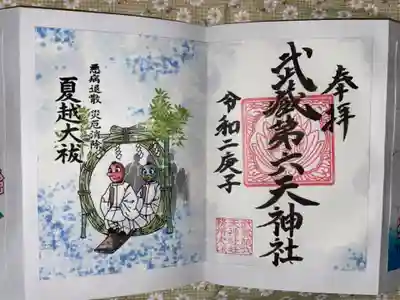 奉拝
武蔵第六天神社
令和二庚子
悪病退散 災厄消除
夏越大祓